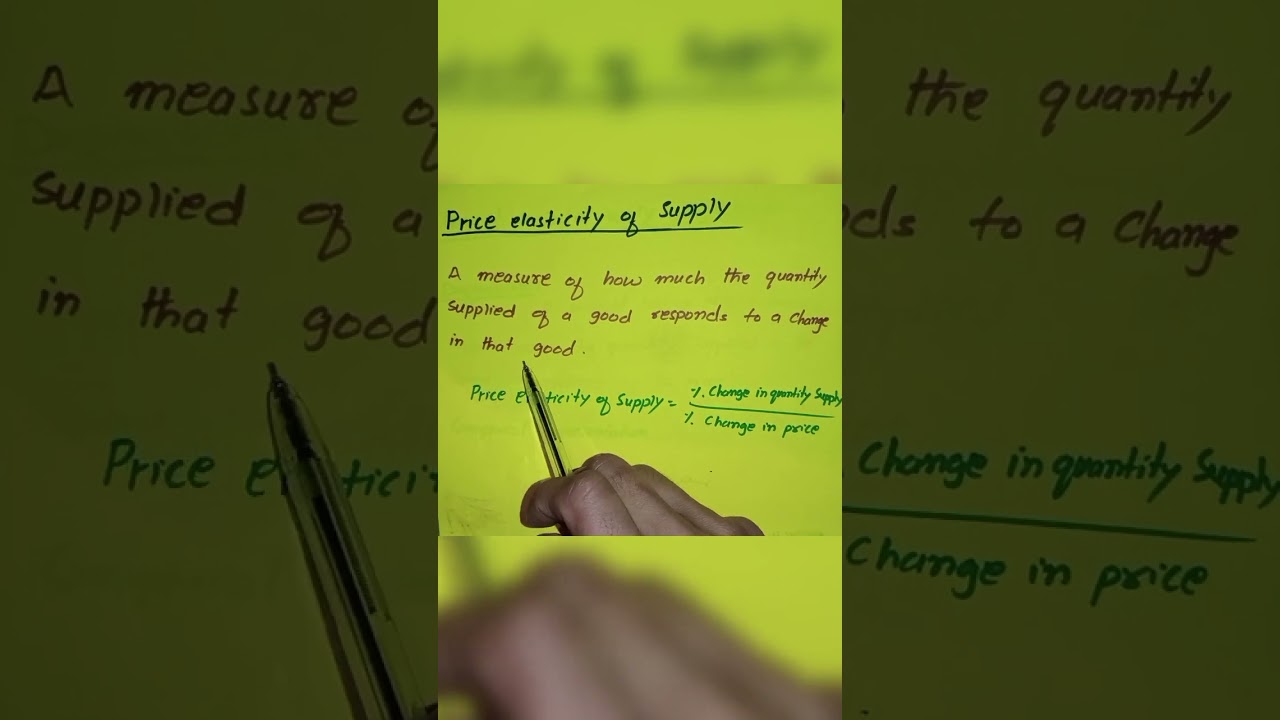 Price elasticity of Supply
A measure of how much the quantity
Supplied of a good responds to a Change
in that good.
Price El ticity of Supply = % Change in quantity Supply
% Change in price